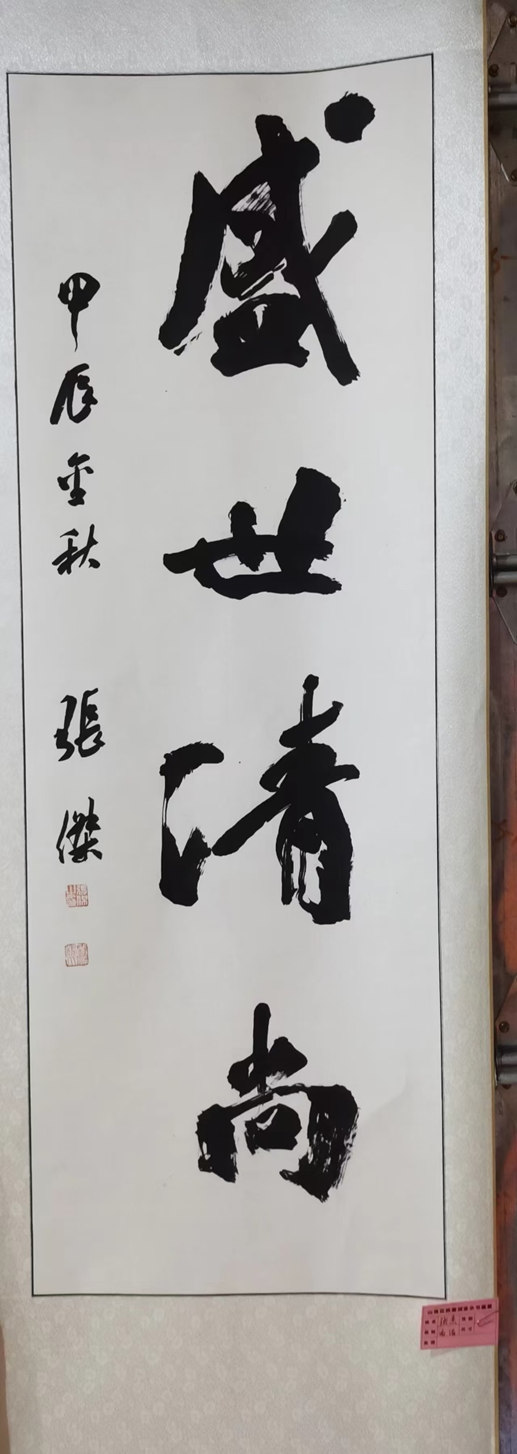 盛世清尚
甲辰金秋
張傑